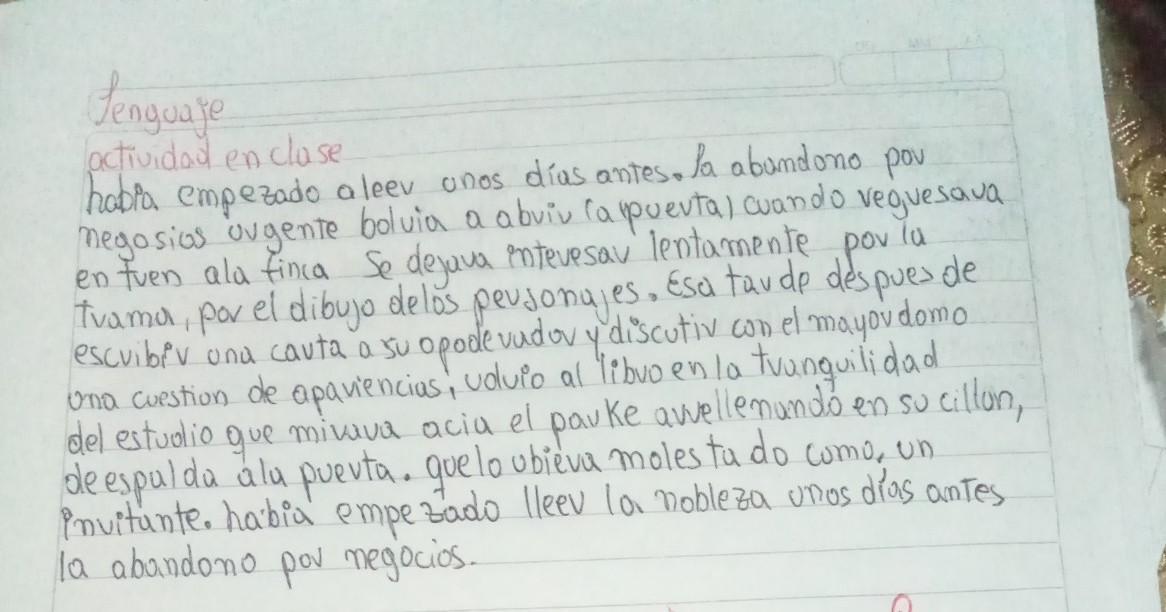 lenguaje
actividad en clase
habia empezado a leer unos días antes. la abamdono por
negosios urgente bolvia a abrir (a puerta) cuando reguesava
en tren ala finca Se dejava interesar lentamente por la
trama, por el dibujo delos personajes. Esa tarde despues de
escribir una carta a su apoderador y discutir con el mayordomo
una cuestion de apariencias, volvio al libro en la tranquilidad
del estudio que mirava acia el parke arrellenando en su cillon,
de espalda ala puerta. que lo ubiera molestado como, un
invitante. habia empezado lleer la nobleza unos días antes
la abandono por negocios.